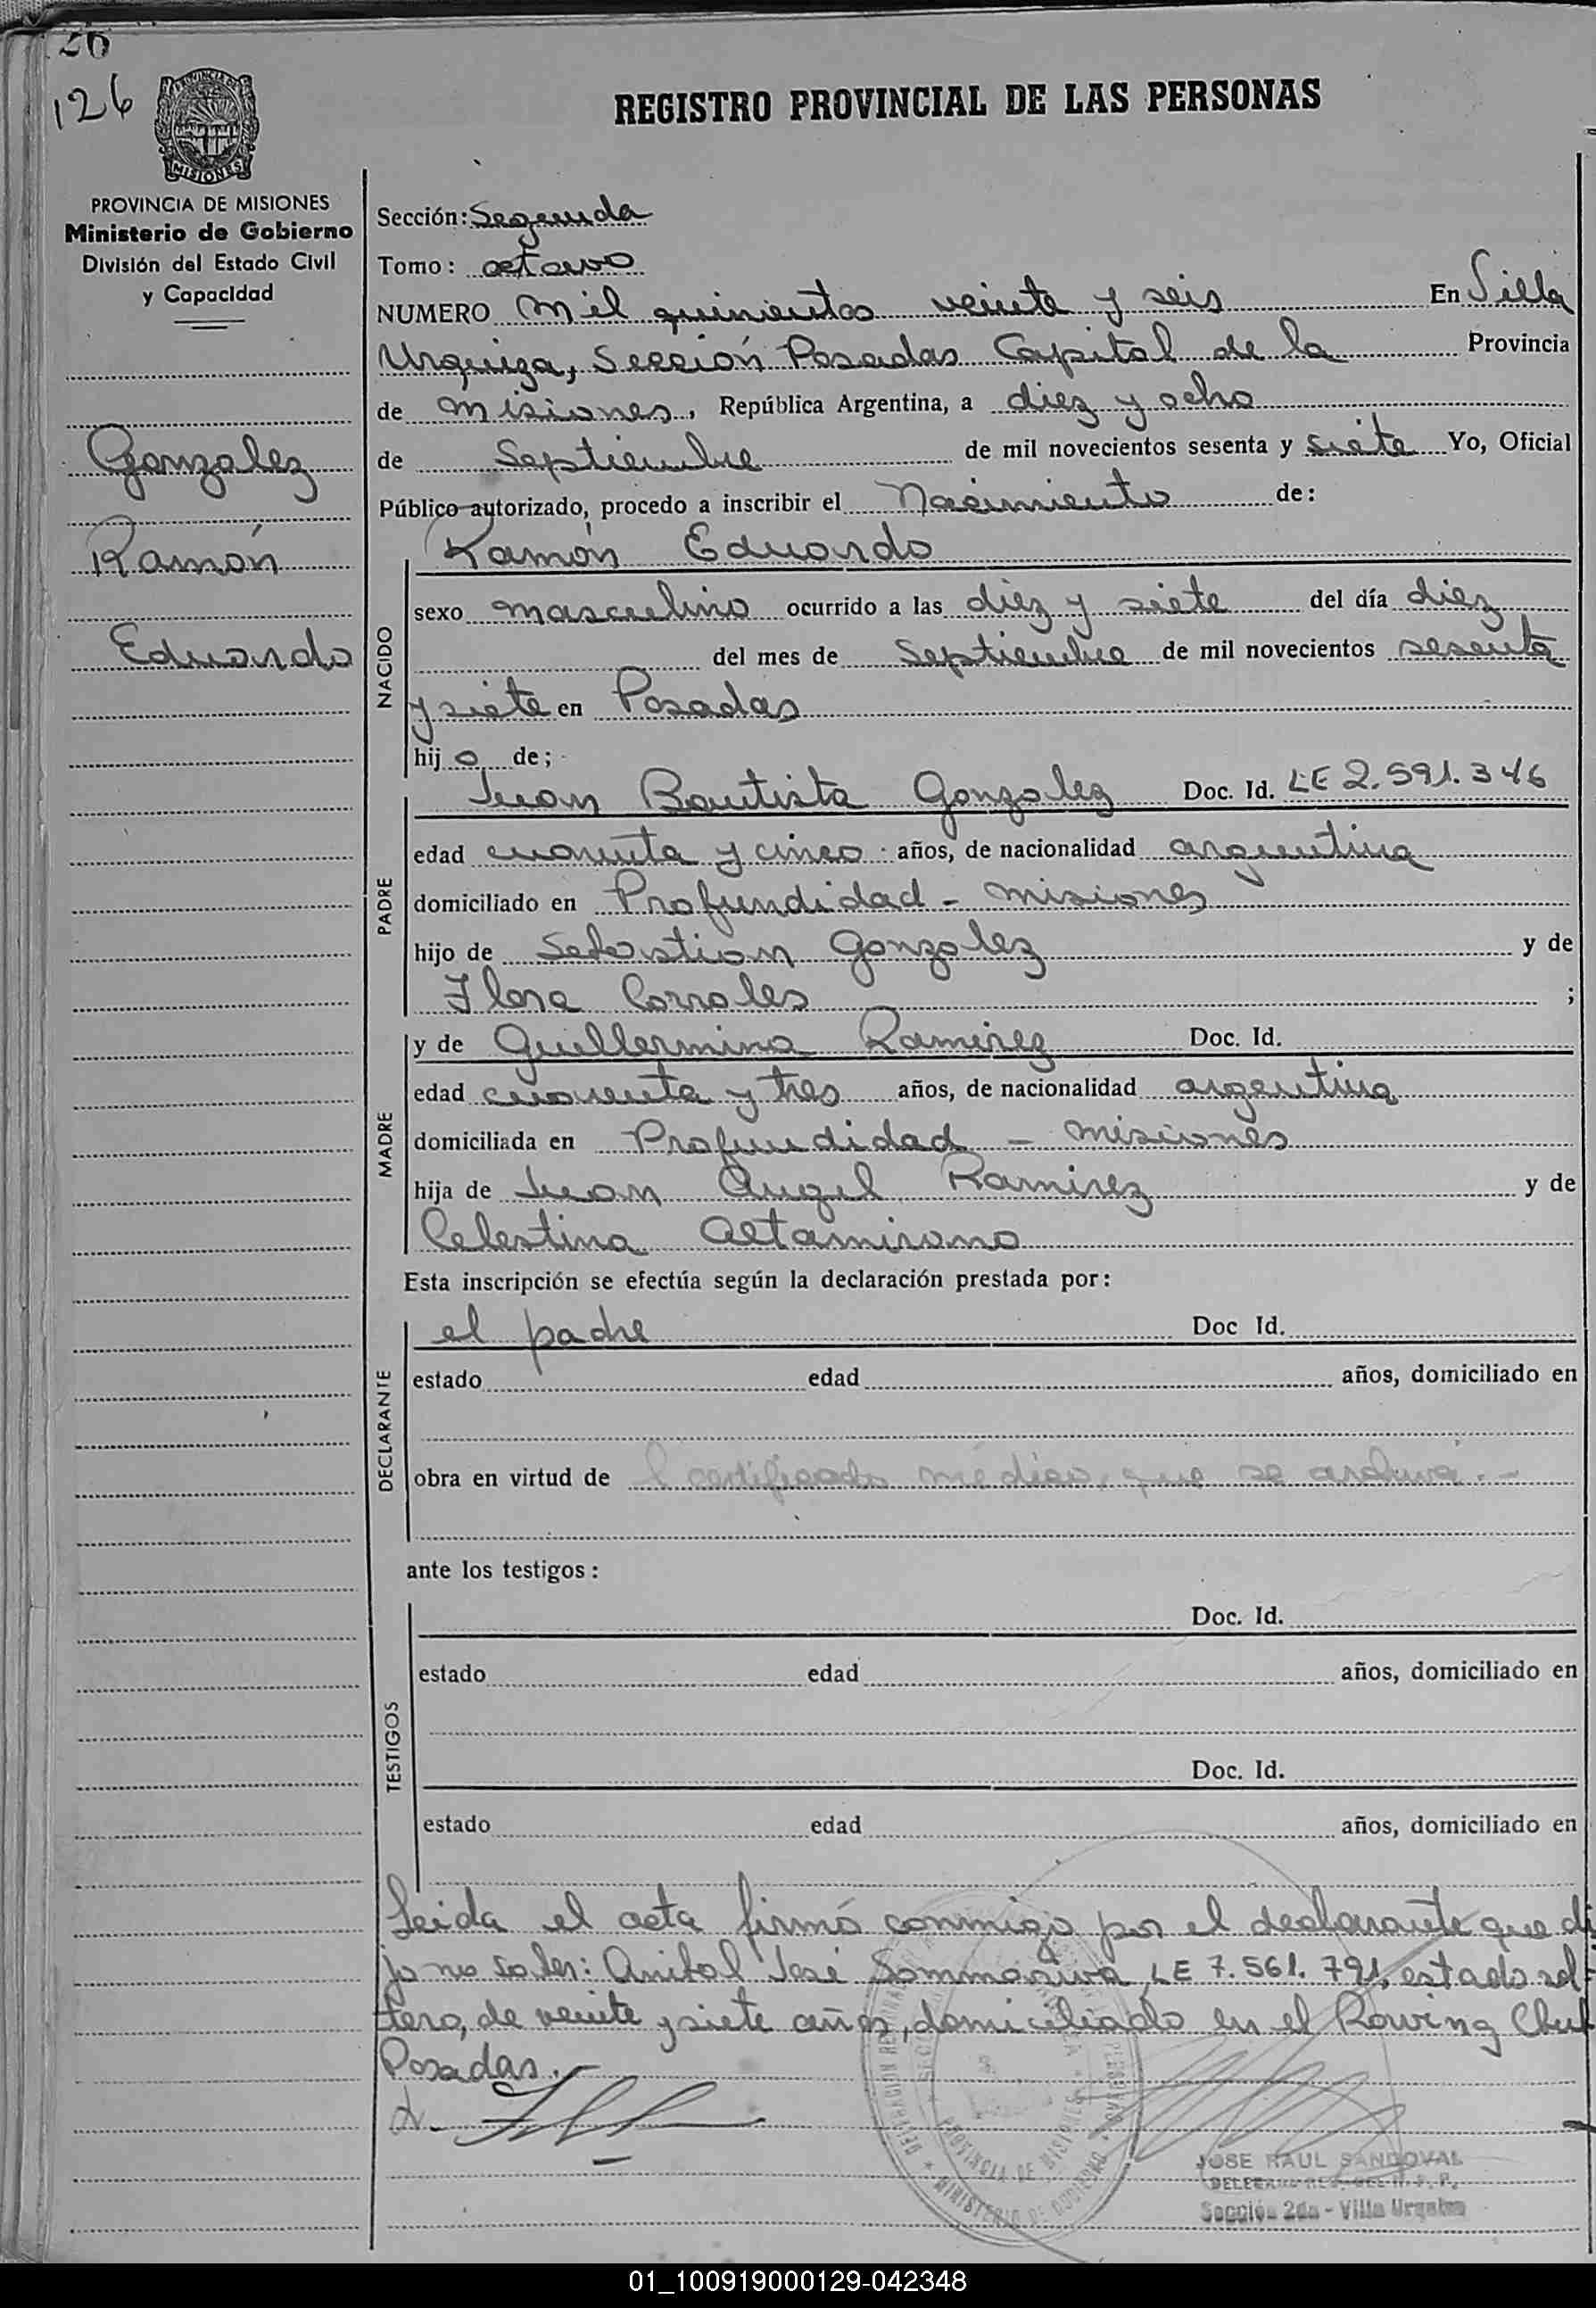 26
126
PROVINCIA DE
MISIONES
REGISTRO PROVINCIAL DE LAS PERSONAS
PROVINCIA DE MISIONES
Ministerio de Gobierno
División del Estado Civil
y Capacidad
Gonzalez
Ramón
Eduardo
Sección: Segunda
Tomo: octavo
NUMERO mil quinientos veinte y seis En Villa
Urquiza, Sección Posadas Capital de la Provincia
de Misiones, República Argentina, a diez y ocho
de Septiembre de mil novecientos sesenta y siete Yo, Oficial
Público autorizado, procedo a inscribir el Nacimiento de:
NACIDO
Ramón Eduardo
sexo masculino ocurrido a las diez y siete del día diez
del mes de Septiembre de mil novecientos sesenta
y siete en Posadas
hij o de;
PADRE
Juan Bautista Gonzalez Doc. Id. LE 2.591.346
edad cuarenta y cinco años, de nacionalidad argentina
domiciliado en Profundidad - Misiones
hijo de Sebastian Gonzalez y de
Flora Corrales ;
MADRE
y de Guillermina Ramirez Doc. Id.
edad cuarenta y tres años, de nacionalidad argentina
domiciliada en Profundidad - Misiones
hija de Juan Angel Ramirez y de
Celestina Altamirano
Esta inscripción se efectúa según la declaración prestada por:
DECLARANTE
el padre Doc Id.
estado edad años, domiciliado en
obra en virtud de l certificado médico, que se archiva.-
ante los testigos:
TESTIGOS
Doc. Id.
estado edad años, domiciliado en
Doc. Id.
estado edad años, domiciliado en
Leida el acta firmó conmigo por el declarante que di
jo no saber: Anibal José Sommariva LE 7.561.791, estado sol-
tero, de veinte y siete años, domiciliado en el Rowing Club
Posadas.-
PROVINCIA DE MISIONES
MINISTERIO DE GOBIERNO
JOSE RAUL SANDOVAL
Sección 2da - Villa Urquiza
01_100919000129-042348